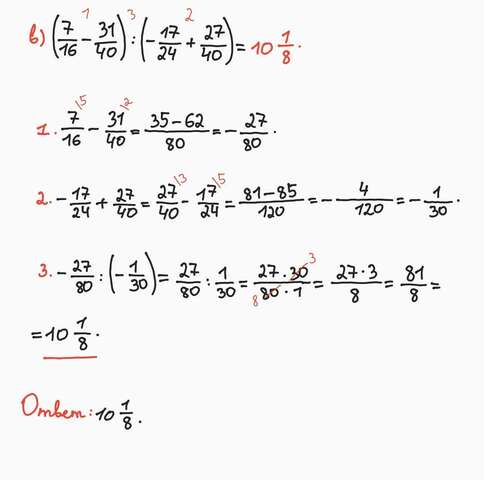 в) (7/16 − 31/40) : (−17/24 + 27/40) = 10 1/8.
1 3 2
1. 7/16 − 31/40 = (35 − 62)/80 = −27/80.
5 2
2. −17/24 + 27/40 = 27/40 − 17/24 = (81 − 85)/120 = −4/120 = −1/30.
3 5
3. −27/80 : (−1/30) = 27/80 : 1/30 = (27 · 30)/(80 · 1) = (27 · 3)/8 = 81/8 =
3 8
= 10 1/8.
Ответ: 10 1/8.